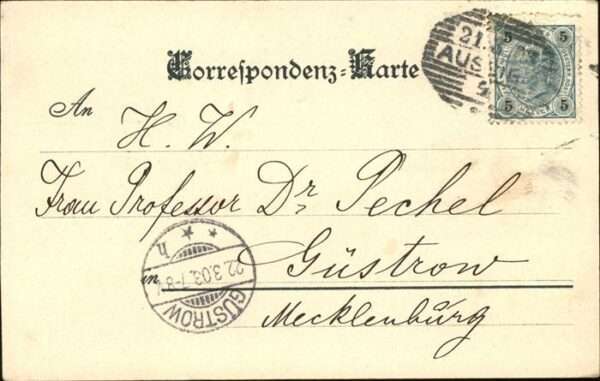 Correspondenz-Karte
5 5
5 5
21.
AUS
An H. W.
Frau Professor Dr. Pechel
in Güstrow
Mecklenburg
GÜSTROW
22.3.03.7-8
h